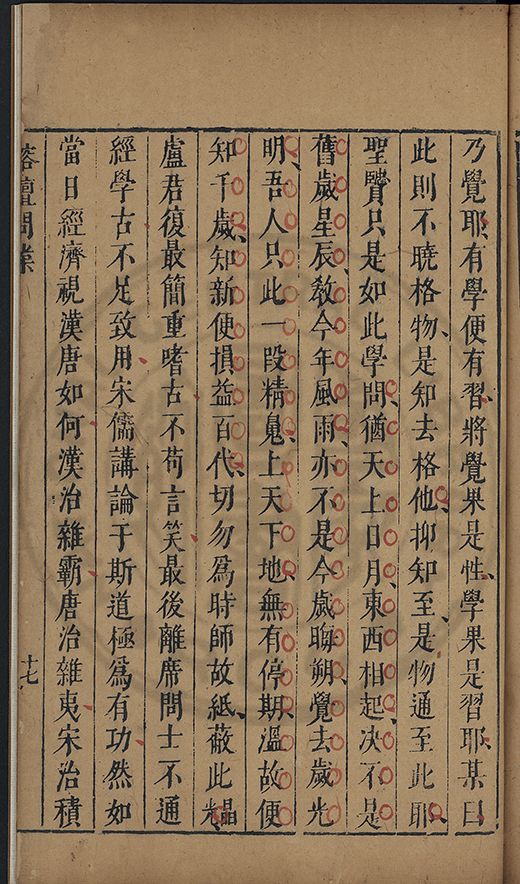 乃覺耶有學便有習將覺果是性學果是習耶某曰
此則不曉格物是知去格他抑知至是物通至此耶
聖贒只是如此學問猶天上日月東西相起决不是
舊歲星辰敎今年風雨亦不是今歲晦朔覺去歲光
明吾人只此一段精鬼上天下地無有停期溫故便
知千歲知新便損益百代切勿爲時師故紙蔽此
盧君復最簡重嗜古不苟言笑最後離席問士不通
經學古不足致用宋儒講論于斯道極爲有功然如
當日經濟視漢唐如何漢治雜霸唐治雜夷宋治積
榕壇問業
十七